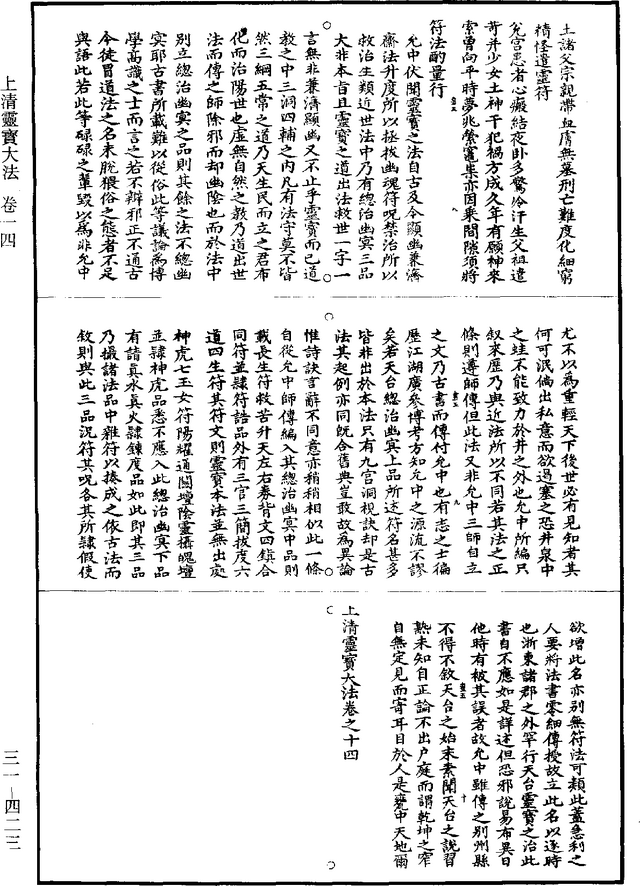 土諸父宗親滯血膚無墓刑亡難度化細窮
精怪道靈符
允宮患者心癡結夜卧多驚冷汗生父祖違
苛并少女土神干犯禍方成久年有願神來
索曾向平時夢兆縈竈祟亦因來間隙須將
符法酌量行
允中伏聞靈寶之法自古及今顯幽兼濟
齋法升度所以拯拔幽魂符呪禁治所以
救治生類近世法中乃有總治幽冥三品
大非本旨且靈寶之道出法救世一字一
言無非兼濟顯幽又不止乎靈寶而已道
教之中三洞四輔之內凡有法守莫不皆
然三綱五常之道乃天生民而立之君布
化而治陽世也虛無自然之教乃道出世
法而傳之師除邪而却幽陰也而於法中
別立總治幽冥之品則其餘之法不總幽
冥耶古書所載難以從俗此等議論為博
學高識之士而言之若不辯邪正不通古
今徒冒道法之名未脫猥俗之態者不足
與語此若此等碌碌之輩毀以為非允中
尤不以為重輕天下後世必有見知者其
何可泯倘出私意而欲過塞之恐井泉中
之蛙不能致力於井之外也允中所編只
叙來歷乃與近法所以不同若其法之正
條則遵師傳但此法又非允中三師自立
之文乃古書而傳付允中也有志之士徧
歷江湖廣參博考方知允中之源流不謬
矣若天台總治幽冥上品所述符名甚多
皆非出於本法只有九宮洞視訣却是古
法其起例亦同既今舊典豈敢故為異論
惟詩訣言辭不同意亦稍稍相似此一條
自從允中師傳編入其總治幽冥中品則
載長生符救苦升天左右券背文四鎮合
同符並隸符誥品外有三官三簡拔度六
道四生符其符文則靈寶本法並無出處
神虎七玉女符陽耀通闓壇陰靈攝魄壇
並隸神虎品悉不應入此總治幽冥下品
有請真水真火隸鍊度品如此即其三品
乃撮諸法品中雜符以揍成之依古法而
敘則與此三品況符其呪各其所隸假使
欲增此名亦別無符法可類此蓋急利之
人要將法書零細傳授故立此名以逐時
也浙東諸郡之外罕行天台靈寶之治此
書自不應如是詳述但恐邪說易布異日
他時有被其誤者故允中雖傳之別州縣
不得不敘天台之始末素聞天台之說習
熟未知自正論不出戶庭而謂乾坤之窄
自無定見而寄耳目於人是甕中天地爾
上清靈寶大法卷之十四
上清靈寶大法 卷一四
三一-四二三